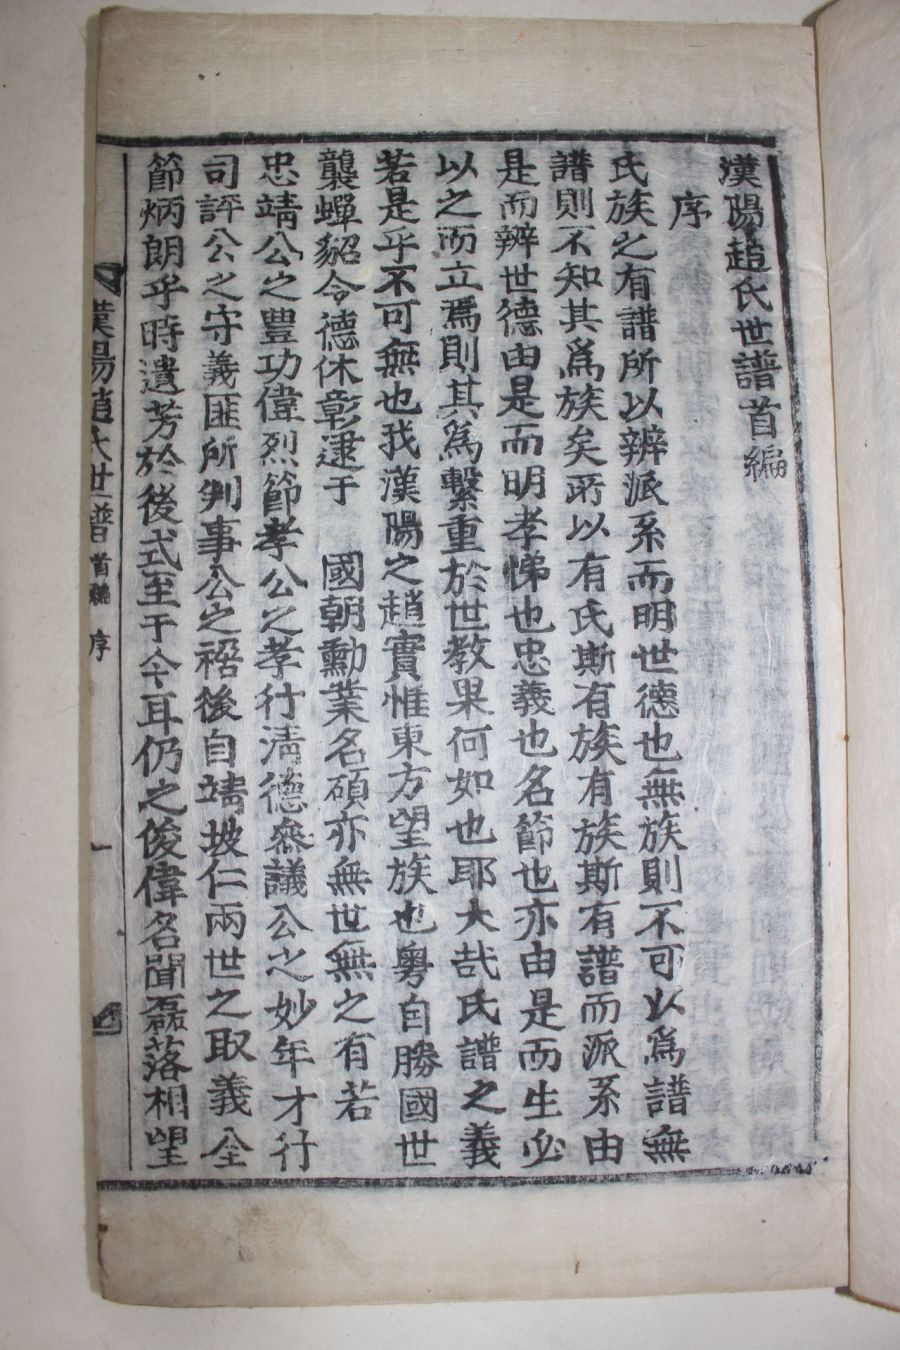 漢陽趙氏世譜首編
序
氏族之有譜所以辨派系而明世德也無族則不可以爲譜無
譜則不知其爲族矣所以有氏斯有族有族斯有譜而派系由
是而辨世德由是而明孝悌也忠義也名節也亦由是而生必
以之而立焉則其爲繫重於世教果何如也耶大哉氏譜之義
若是乎不可無也我漢陽之趙實惟東方望族也粤自勝國世
襲蟬貂令德休彰逮于　國朝勳業名碩亦無世無之有若
忠靖公之豊功偉烈節孝公之孝行淸德叅議公之妙年才行
司評公之守義匪所判事公之裕後自靖坡仁兩世之取義全
節炳朗乎時遺芳於後式至于今耳仍之俊偉名聞磊落相望
漢陽趙氏世譜 首編 序 一